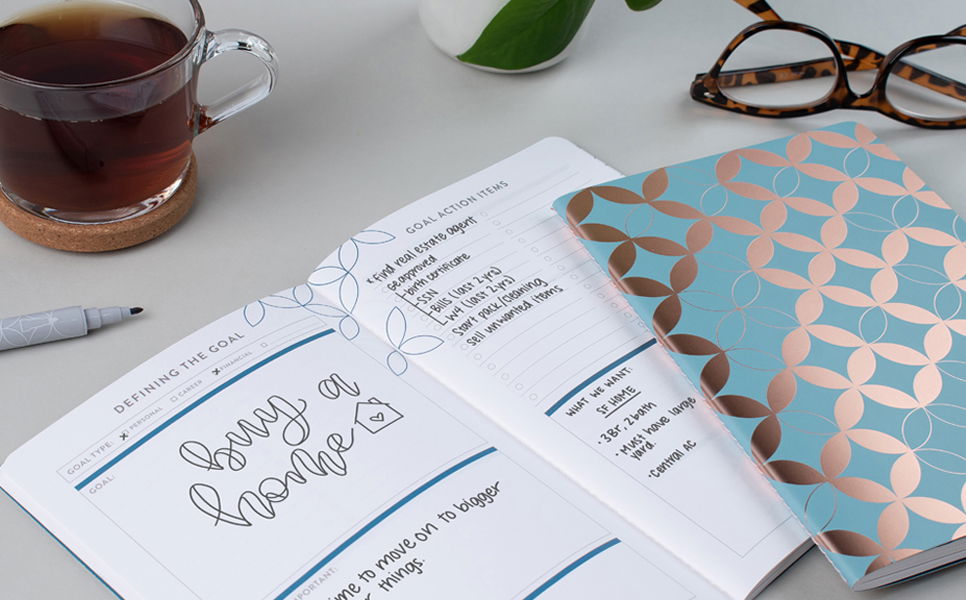 DEFINING THE GOAL
GOAL TYPE: PERSONAL CAREER FINANCIAL
GOAL:
buy a
home
IMPORTANT:
to move on to bigger
things.
GOAL ACTION ITEMS
Find real estate agent
Get approved
birth certificate
SSN
Bills (last 2-yrs)
W4 (last 2-yrs)
Start pack/cleaning
sell unwanted items
WHAT WE WANT:
SF HOME
· 3Br, 2bath
· Must have large
yard.
· Central AC